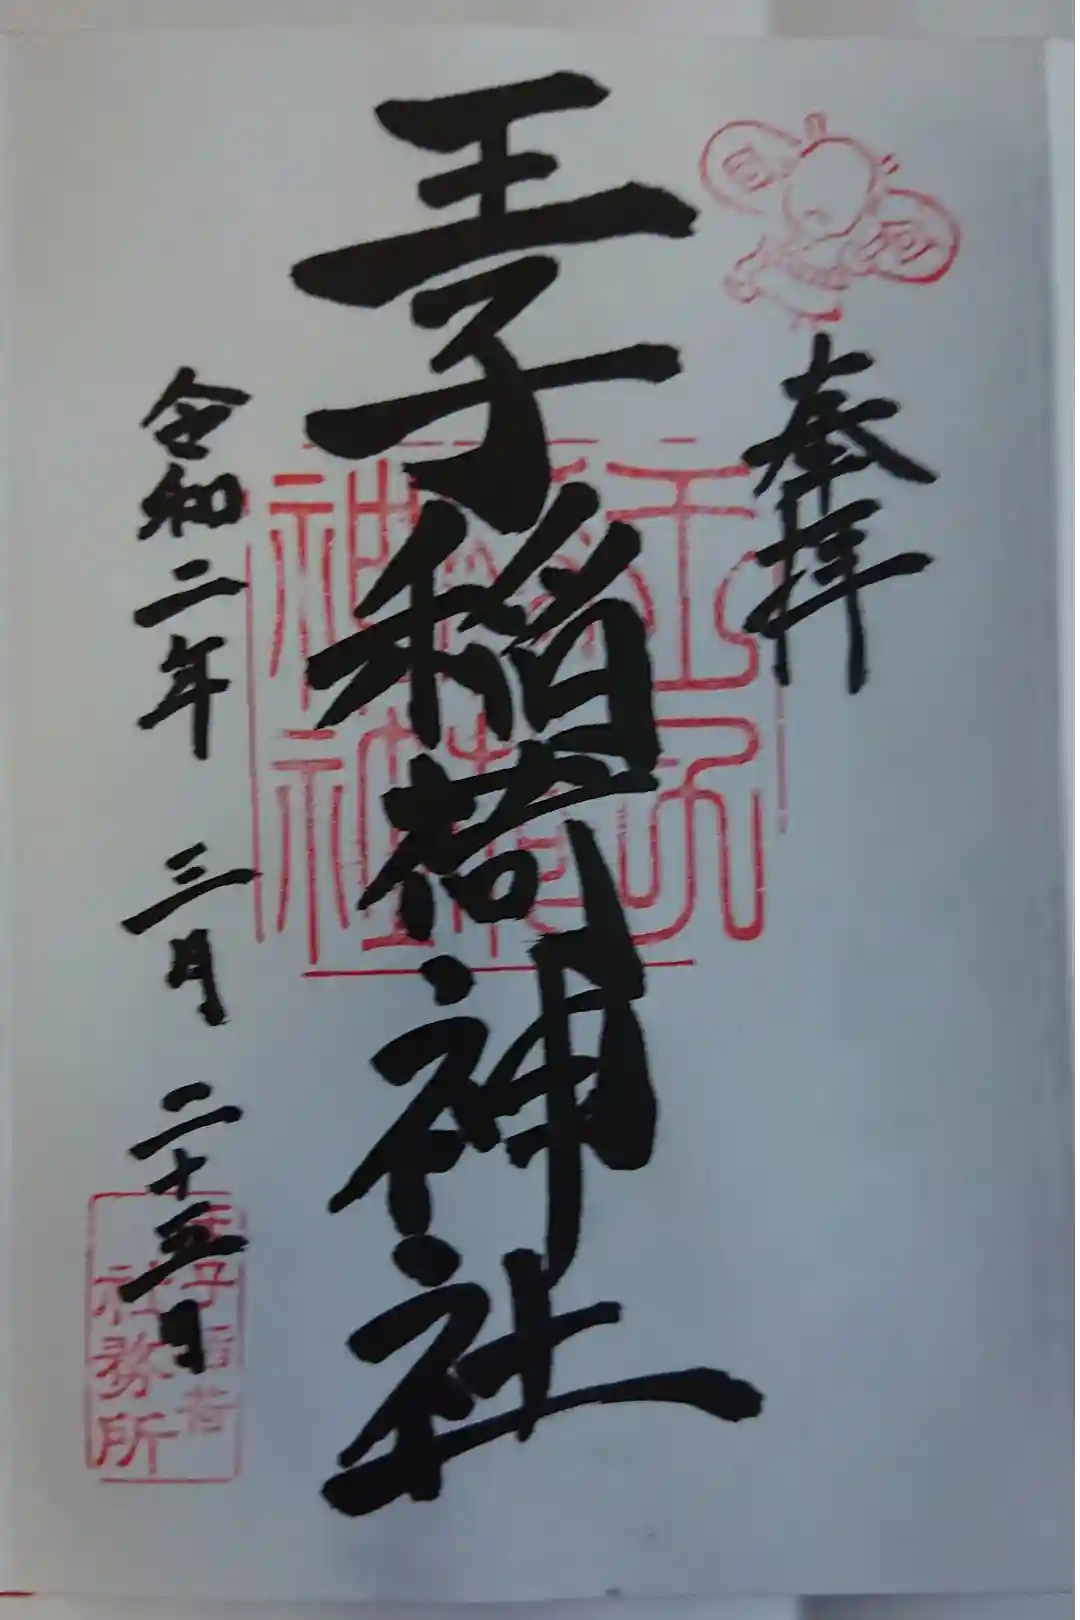 奉拝
王子稲荷神社
令和二年 三月 二十五日
王子稲荷神社
王子稲荷
社務所